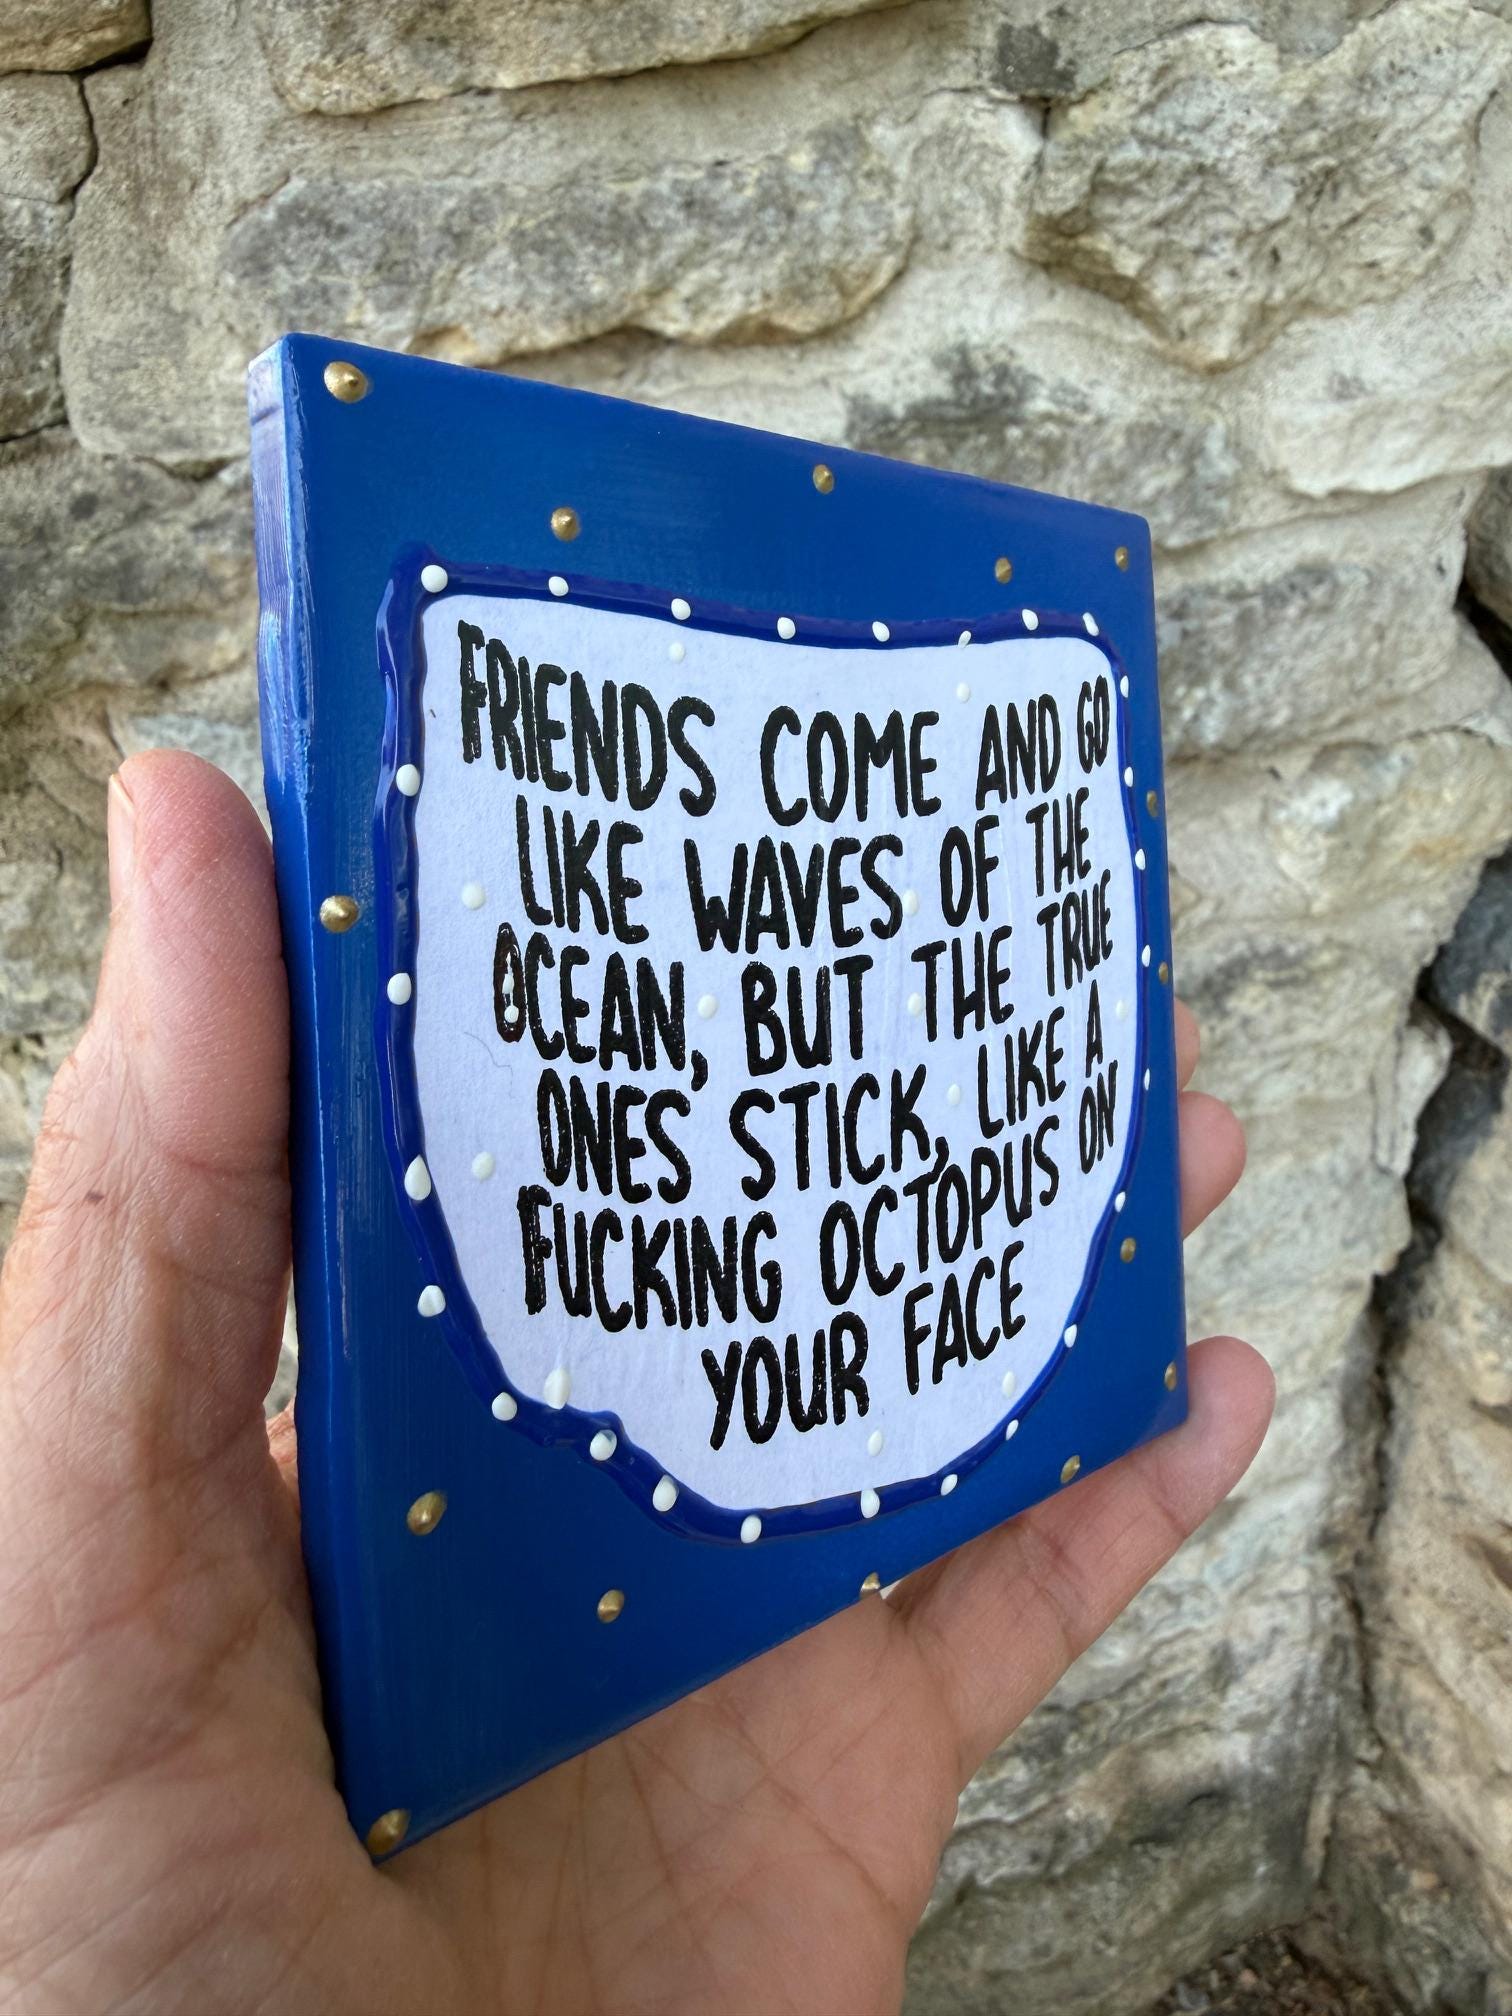 FRIENDS COME AND GO
LIKE WAVES OF THE
OCEAN, BUT THE TRUE
ONES STICK, LIKE A
FUCKING OCTOPUS ON
YOUR FACE